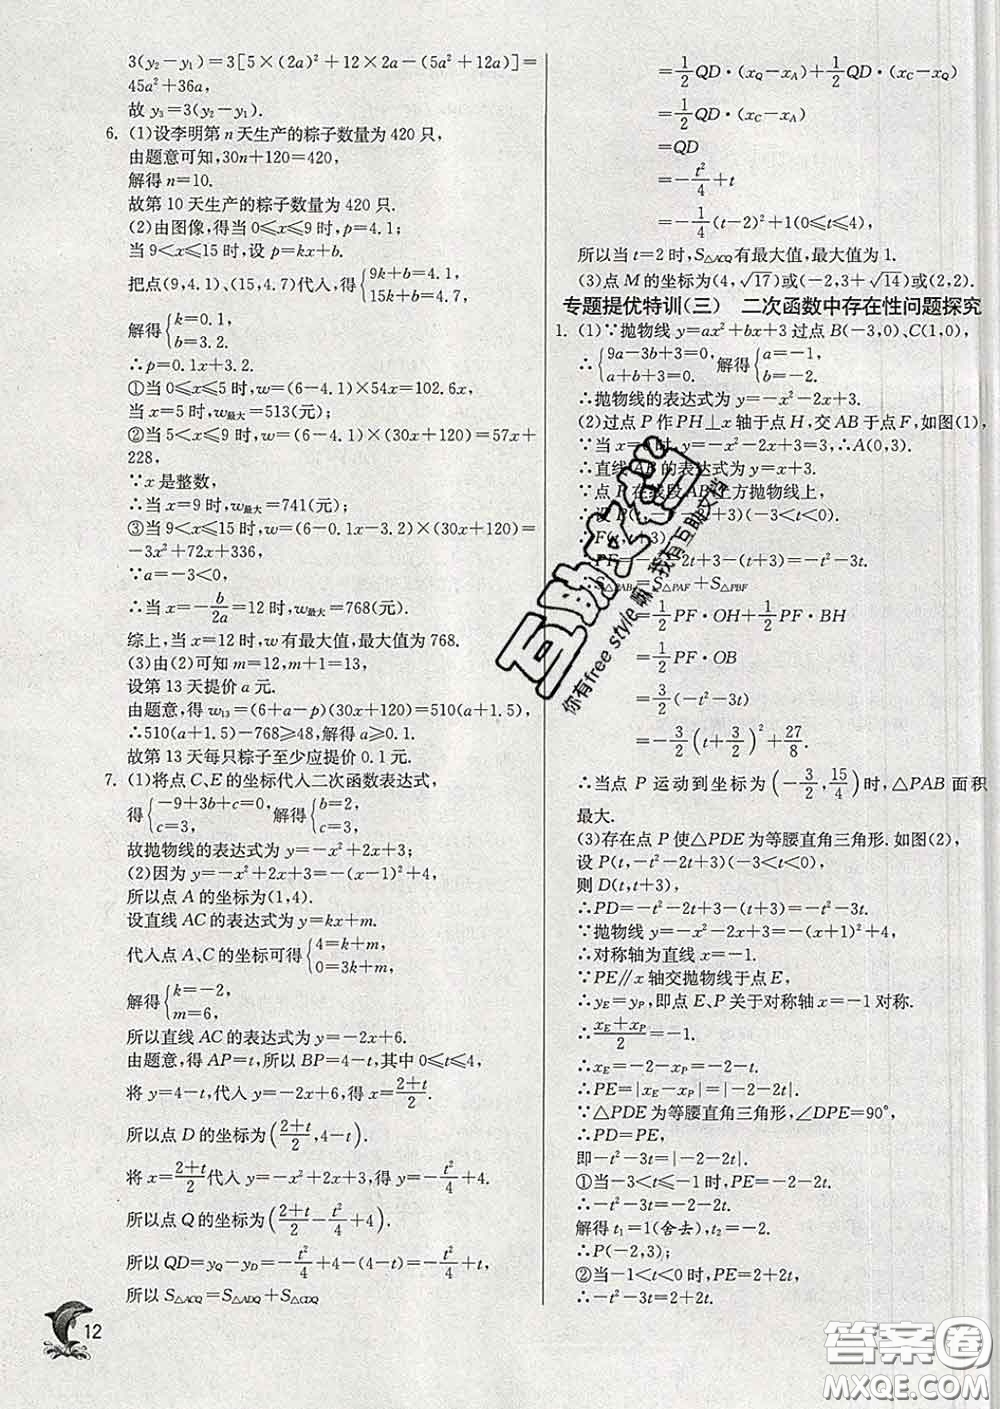 3(y₂−y₁)=3[5×(2a)²+12×2a−(5a²+12a)]=
45a²+36a,
故 y₃=3(y₂−y₁).
6. (1)设李明第 n 天生产的粽子数量为 420 只,
由题意可知,30n+120=420,
解得 n=10.
故第 10 天生产的粽子数量为 420 只.
(2)由图像,得当 0≤x≤9 时,p=4.1;
当 9<x≤15 时,设 p=kx+b.
把点(9,4.1)、(15,4.7)代入,得{9k+b=4.1, 15k+b=4.7,
解得{k=0.1, b=3.2.
∴p=0.1x+3.2.
①当 0≤x≤5 时,w=(6−4.1)×54x=102.6x,
当 x=5 时,w最大=513(元);
②当 5<x≤9 时,w=(6−4.1)×(30x+120)=57x+
228,
∵x 是整数,
∴当 x=9 时,w最大=741(元);
③当 9<x≤15 时,w=(6−0.1x−3.2)×(30x+120)=
−3x²+72x+336,
∵a=−3<0,
∴当 x=−b/2a=12 时,w最大=768(元).
综上,当 x=12 时,w 有最大值,最大值为 768.
(3)由(2)可知 m=12,m+1=13,
设第 13 天提价 a 元.
由题意,得 w₁₃=(6+a−p)(30x+120)=510(a+1.5),
∴510(a+1.5)−768≥48,解得 a≥0.1.
故第 13 天每只粽子至少应提价 0.1 元.
7. (1)将点 C、E 的坐标代入二次函数表达式,
得{−9+3b+c=0, c=3, 解得{b=2, c=3,
故抛物线的表达式为 y=−x²+2x+3;
(2)因为 y=−x²+2x+3=−(x−1)²+4,
所以点 A 的坐标为(1,4).
设直线 AC 的表达式为 y=kx+m.
代入点 A、C 的坐标可得{4=k+m, 0=3k+m,
解得{k=−2, m=6,
所以直线 AC 的表达式为 y=−2x+6.
由题意,得 AP=t,所以 BP=4−t,其中 0≤t≤4,
将 y=4−t,代入 y=−2x+6,得 x=(2+t)/2.
所以点 D 的坐标为((2+t)/2,4−t).
将 x=(2+t)/2代入 y=−x²+2x+3,得 y=−t²/4+4.
所以点 Q 的坐标为((2+t)/2−t²/4+4).
所以 QD=y_Q−y_D=−t²/4+4−(4−t)=−t²/4+t,
所以 S△ACQ=S△ADQ+S△CDQ
=1/2 QD·(x_Q−x_A)+1/2 QD·(x_C−x_Q)
=1/2 QD·(x_C−x_A)
=QD
=−t²/4+t
=−1/4(t−2)²+1(0≤t≤4),
所以当 t=2 时,S△ACQ有最大值,最大值为 1.
(3)点 M 的坐标为(4,√17)或(−2,3+√14)或(2,2).
专题提优特训(三) 二次函数中存在性问题探究
1. (1)∵抛物线 y=ax²+bx+3 过点 B(−3,0)、C(1,0),
∴{9a−3b+3=0, a+b+3=0, 解得{a=−1, b=−2.
∴抛物线的表达式为 y=−x²−2x+3.
(2)过点 P 作 PH⊥x 轴于点 H,交 AB 于点 F,如图(1),
∵当 x=0时,y=−x²−2x+3=3,∴A(0,3).
∴直线 AB 的表达式为 y=x+3.
∵点 P 在线段 AB 上方抛物线上,
∴设 P(t,−t²−2t+3)(−3<t<0).
∴F(t,t+3).
∴PF=−t²−2t+3−(t+3)=−t²−3t.
∴S△PAB=S△PAF+S△PBF
=1/2 PF·OH+1/2 PF·BH
=1/2 PF·OB
=3/2(−t²−3t)
=−3/2(t+3/2)²+27/8.
∴当点 P 运动到坐标为(−3/2,15/4)时,△PAB 面积
最大.
(3)存在点 P 使△PDE 为等腰直角三角形.如图(2),
设 P(t,−t²−2t+3)(−3<t<0),
则 D(t,t+3),
∴PD=−t²−2t+3−(t+3)=−t²−3t.
∵抛物线 y=−x²−2x+3=−(x+1)²+4,
∴对称轴为直线 x=−1.
∵PE∥x 轴交抛物线于点 E,
∴y_E=y_P,即点 E、P 关于对称轴 x=−1 对称.
∴(x_E+x_P)/2=−1.
∴x_E=−2−x_P=−2−t.
∴PE=|x_E−x_P|=|−2−2t|.
∵△PDE 为等腰直角三角形,∠DPE=90°,
∴PD=PE,
即−t²−3t=|−2−2t|.
①当−3<t≤−1 时,PE=−2−2t.
∴−t²−3t=−2−2t.
解得 t₁=1(舍去),t₂=−2.
∴P(−2,3);
②当−1<t<0 时,PE=2+2t.
∴−t²−3t=2+2t.
12
互助文档
你有free style嘛,我有互助文档
答案圈
MXQE.COM